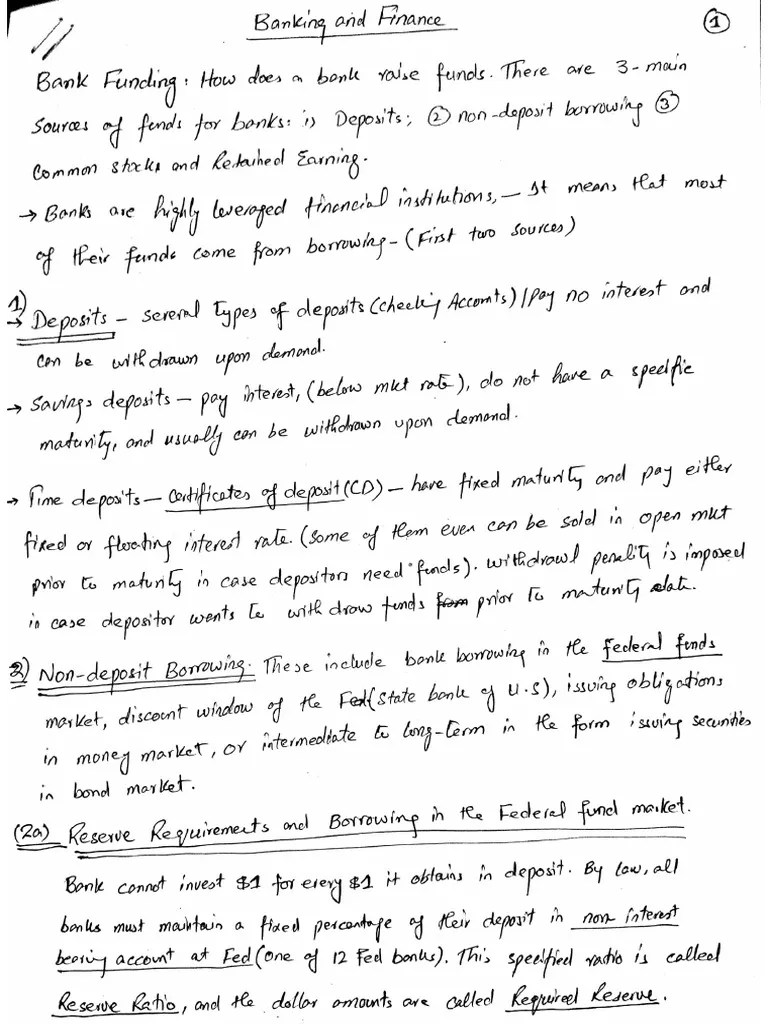 Banking and Finance
1
Bank Funding: How does a bank raise funds. There are 3-main
sources of funds for banks: is Deposits; ② non-deposit borrowing ③
Common stocks and Retained Earning.
→ Banks are highly leveraged financial institutions, – It means that most
of their funds come from borrowing - (First two sources)
1)
→ Deposits – several types of deposits (checking Accounts) / pay no interest and
can be withdrawn upon demand.
→ Savings deposits – pay interest, (below mkt rate), do not have a specific
maturity, and usually can be withdrawn upon demand.
→ Time deposits – Certificates of deposit (CD) – have fixed maturity and pay either
fixed or floating interest rate. (Some of them even can be sold in open mkt
prior to maturity in case depositors need funds). withdrawl penality is imposed
in case depositor wants to with draw funds from prior to maturity date.
2) Non-deposit Borrowing. These include bank borrowing in the federal funds
market, discount window of the Fed (State bank of U.S), issuing obligations
in money market, or intermediate to long-term in the form issuing securities
in bond market.
(2a) Reserve Requirements and Borrowing in the Federal fund market.
Bank cannot invest $1 for every $1 it obtains in deposit. By law, all
banks must maintain a fixed percentage of their deposit in non interest
bearing account at Fed (one of 12 Fed banks). This specified ratio is called
Reserve Ratio, and the dollar amounts are called Required Reserve.